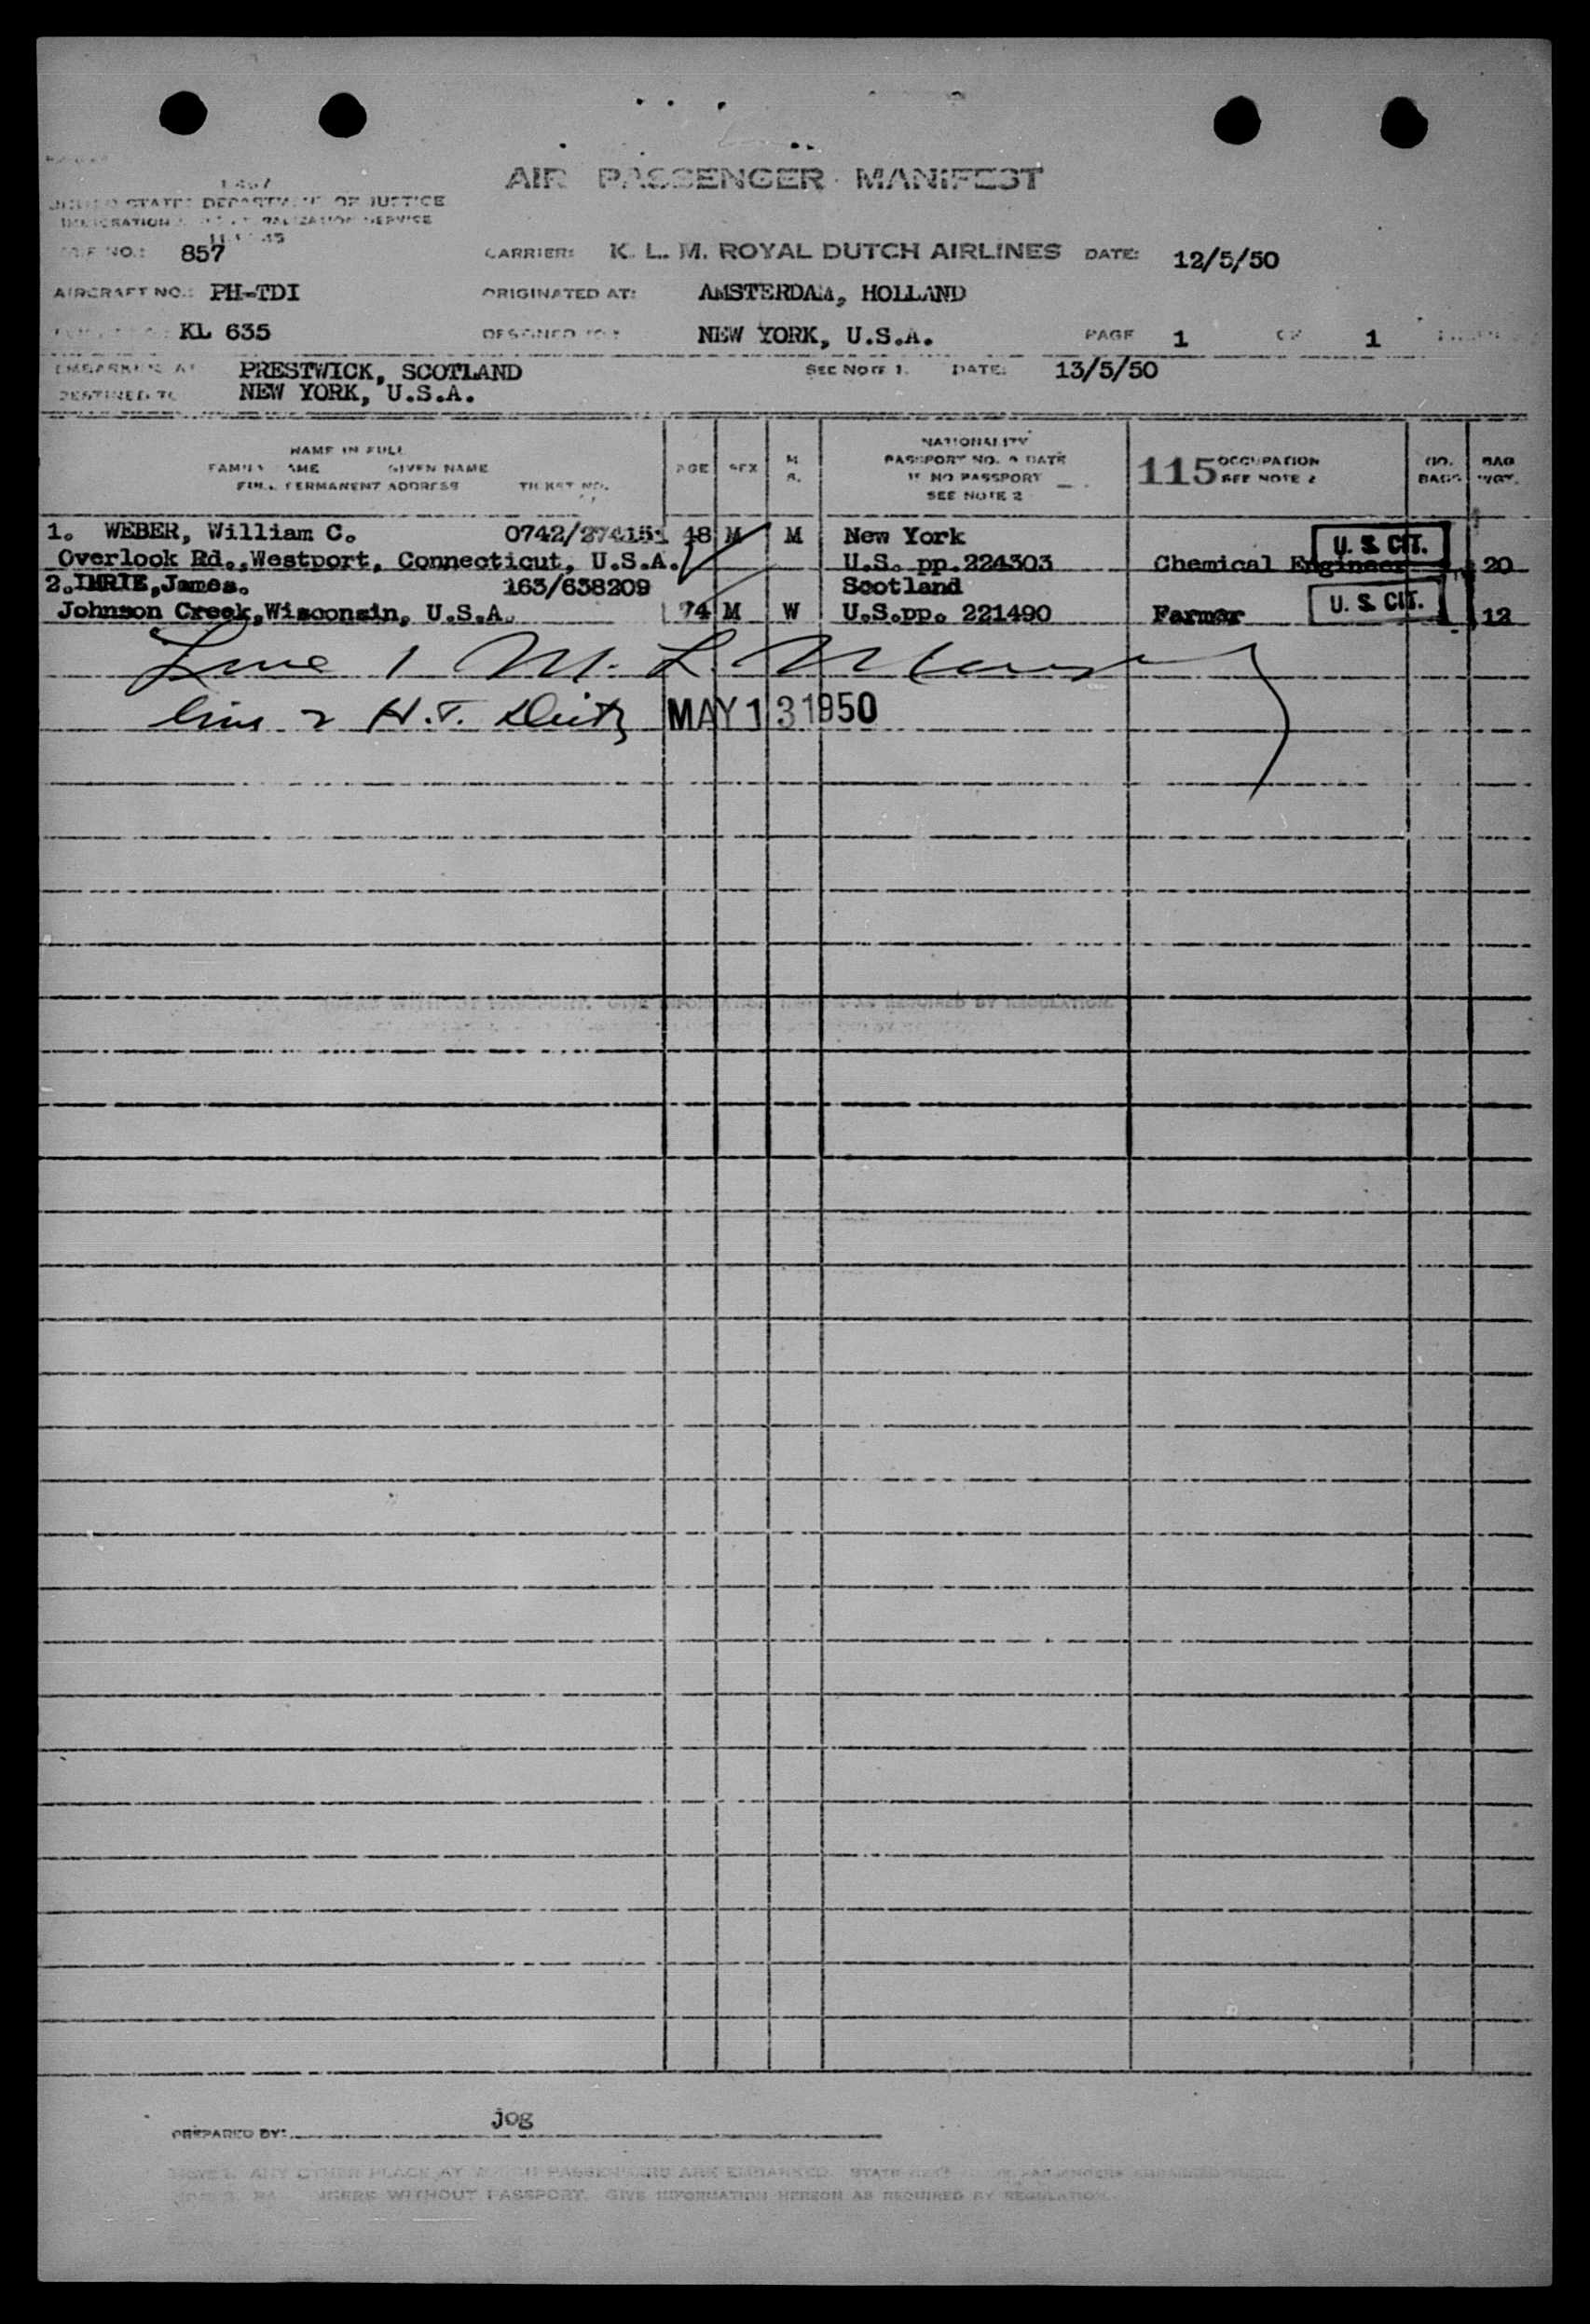 AIR PASSENGER MANIFEST
UNITED STATES DEPARTMENT OF JUSTICE
IMMIGRATION NATURALIZATION SERVICE
NO.: 857 CARRIER: K. L. M. ROYAL DUTCH AIRLINES DATE: 12/5/50
AIRCRAFT NO.: PH-TDI ORIGINATED AT: AMSTERDAM, HOLLAND
KL 635 DESTINED TO: NEW YORK, U.S.A. PAGE 1 OF 1
EMBARKED AT PRESTWICK, SCOTLAND SEE NOTE 1. DATE: 13/5/50
DESTINED TO NEW YORK, U.S.A.
NAME IN FULL
FAMILY NAME GIVEN NAME
FULL PERMANENT ADDRESS TICKET NO.
AGE SEX M S.
NATIONALITY
PASSPORT NO. & DATE
IF NO PASSPORT
SEE NOTE 2
115 OCCUPATION
SEE NOTE 2
NO. BAGS
BAG WGT.
1. WEBER, William C. 0742/274151 48 M M New York U. S. CIT.
Overlook Rd.,Westport, Connecticut, U.S.A. U.S. pp.224303 Chemical Engineer 20
2.IMRIE,James. 163/638209 Scotland
Johnson Creek,Wisconsin, U.S.A. 74 M W U.S.pp. 221490 Farmer U. S. CIT. 12
Line 1 M. L.
Line 2 H.T. Deitz MAY 13 1950
PREPARED BY: jog
ANY OTHER PLACE AT WHICH PASSENGERS ARE EMBARKED. STATE
WITHOUT PASSPORT. GIVE INFORMATION HEREON AS REQUIRED BY REGULATION.